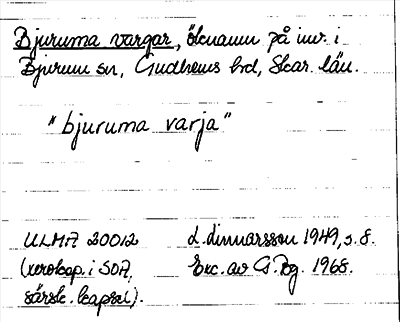 Bjuruma vargar, öknamn på inv. i
Bjurum sn, Gudhems hd, Skar. län.
"bjuruma varja"
ULMA 20012 L. Linnarsson 1949, s. 8.
(xerokop. i SOA, Exc. av G. Bg. 1968.
särsk. kapsel).